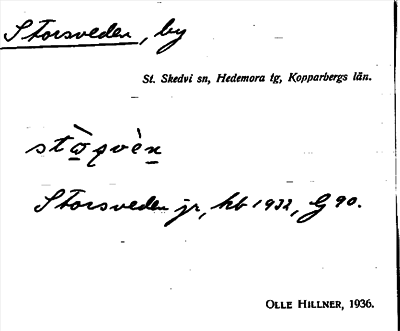 Storsveden, by
St. Skedvi sn, Hedemora tg, Kopparbergs län.
Storsveden jr, hb 1932, G 90.
OLLE HILLNER, 1936.